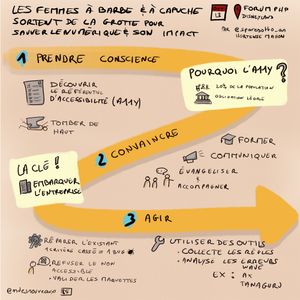 LES FEMMES À BARBE & À CAPUCHE
SORTENT DE LA GROTTE POUR
SAUVER LE NUMÉRIQUE & SON IMPACT
FORUM PHP
DISNEYLAND
1 PRENDRE CONSCIENCE
DÉCOUVRIR
LE RÉFÉRENTIEL
D'ACCESSIBILITÉ (A11Y)
TOMBER DE
HAUT
POURQUOI L'A11Y ?
20% DE LA POPULATION
OBLIGATION LÉGALE
2 CONVAINCRE
FORMER
COMMUNIQUER
ÉVANGELISER
& ACCOMPAGNER
LA CLÉ !
EMBARQUER
L'ENTREPRISE
3 AGIR
RÉPARER L'EXISTANT
1 CRITÈRE CASSÉ = 1 BUG
REFUSER LE NON
ACCESSIBLE
- VALIDER LES MAQUETTES
UTILISER DES OUTILS
- COLLECTE LES RÈGLES
- ANALYSE LES ERREURS
EX : WAVE
AX
TANAGURU